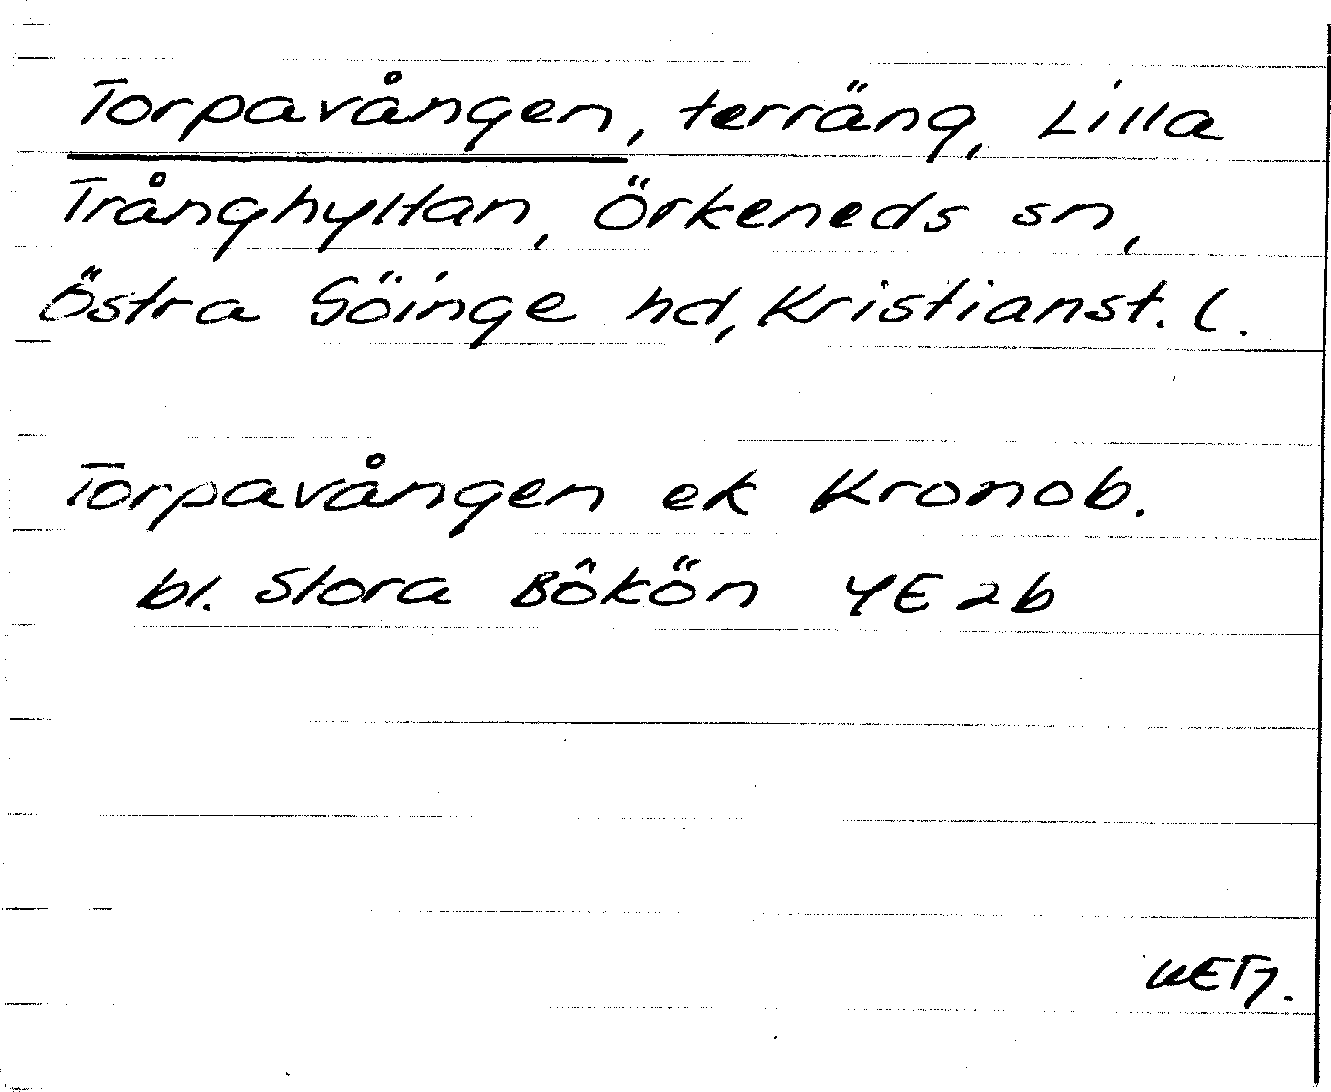 Torpavången, terräng, Lilla
Trånghyltan, Örkeneds sn,
Östra Göinge hd, Kristianst. l.
Torpavången ek Kronob.
bl. Stora Bökön 4E2b